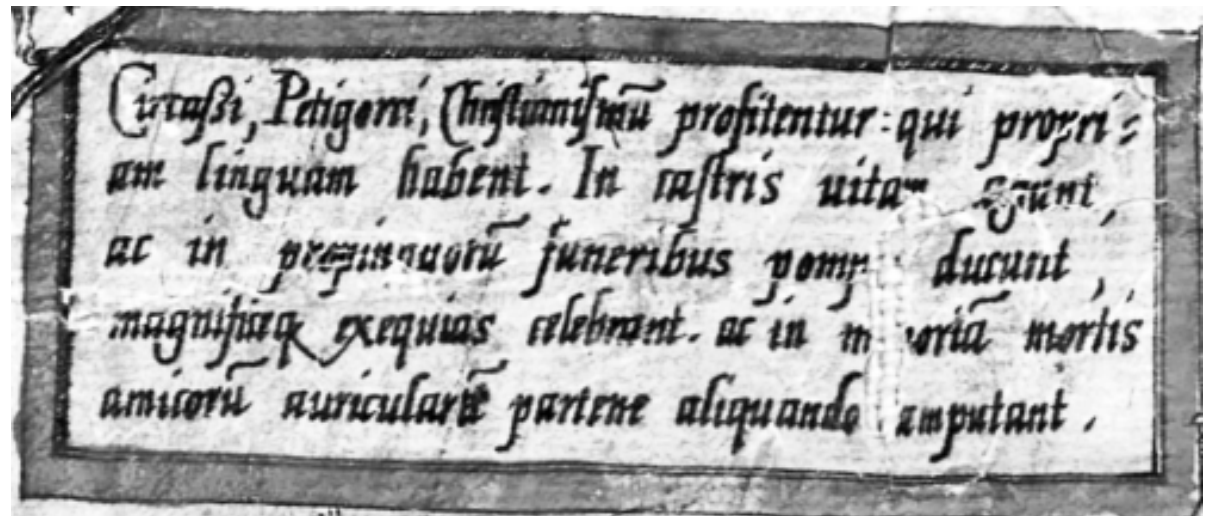 Circaßi, Petigorri, Chriſtianiſmũ profitentur : qui propri⸗
am linguam habent. In caſtris uitam agunt,
ac in propinquorũ funeribus ducunt,
magnificeq exequias celebrant. ac in mortis
amicorũ partem aliquando amputant.